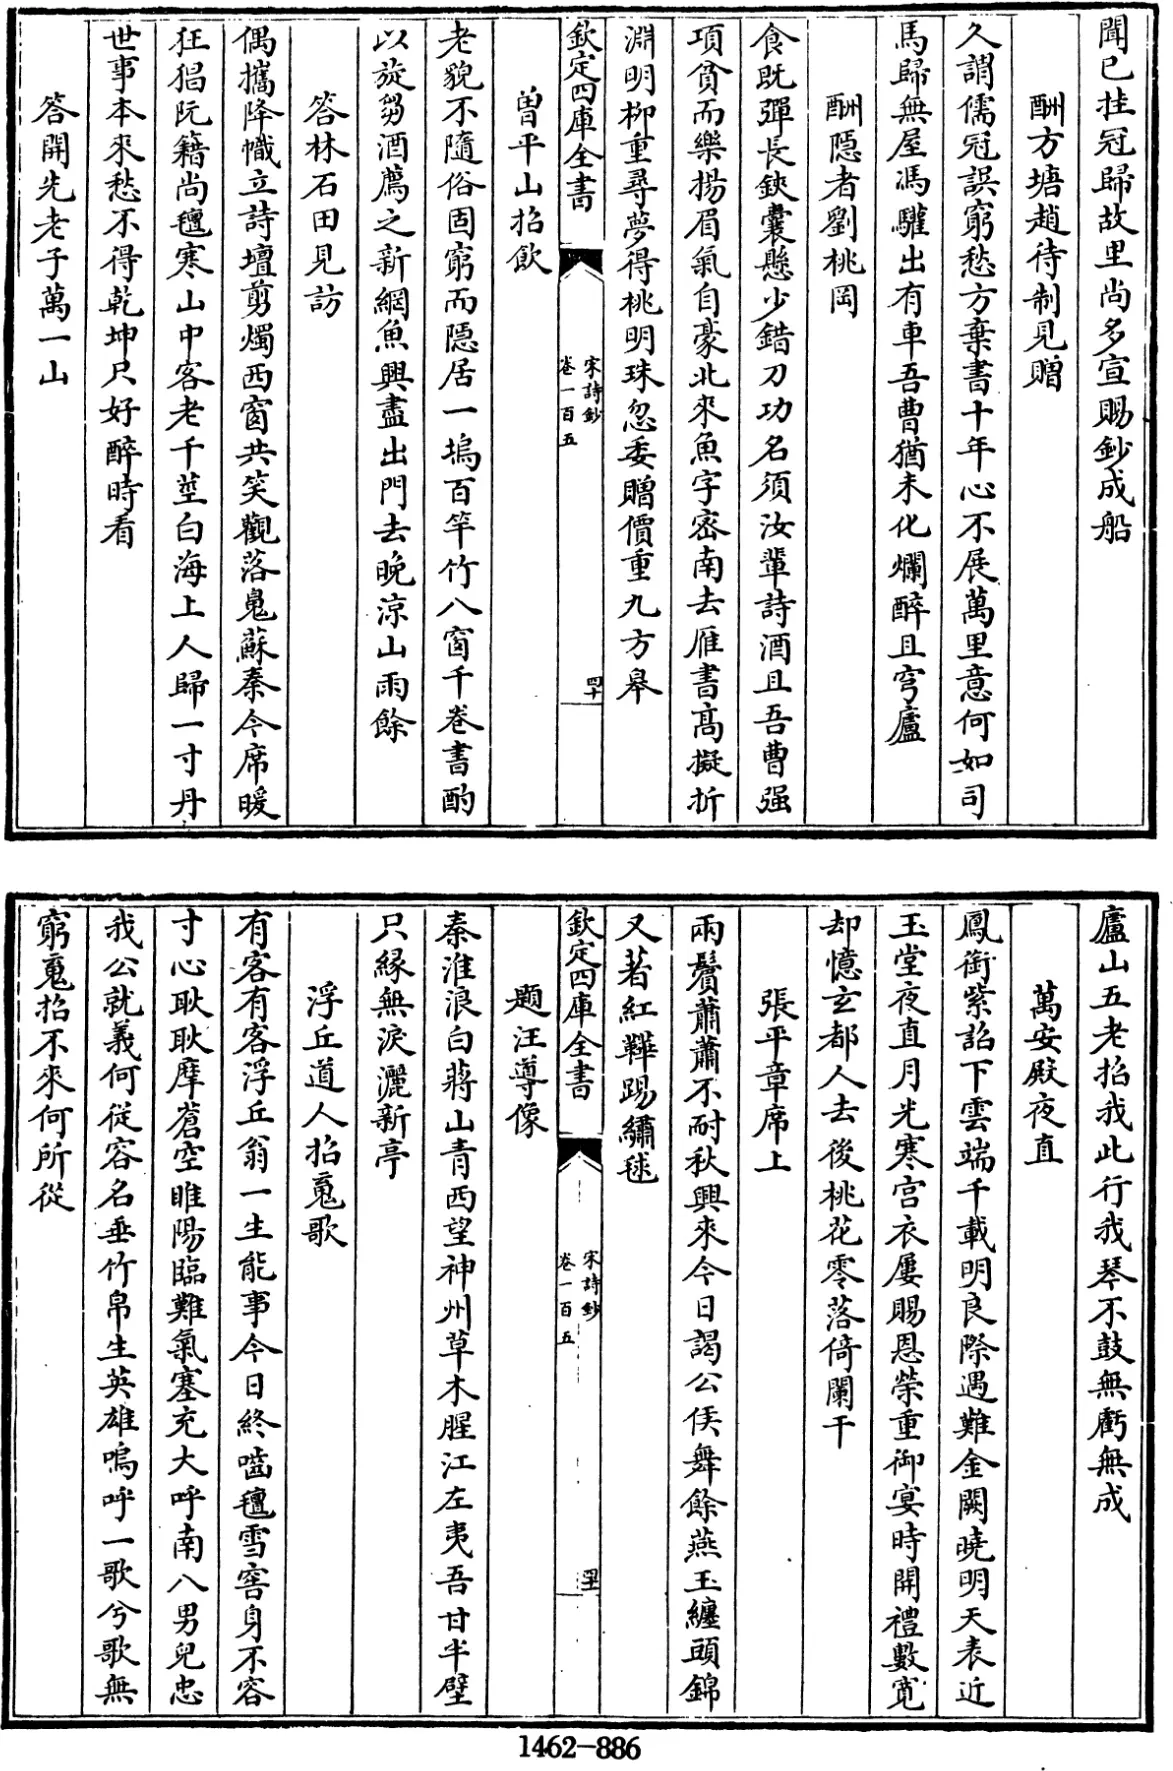 聞已挂冠歸故里尚多宣賜鈔成船
酬方塘趙待制見贈
久謂儒冠誤窮愁方棄書十年心不展萬里意何如司
馬歸無屋馮驩出有車吾曹猶未化爛醉且穹廬
酬隱者劉桃岡
食既彈長鋏囊懸少錯刀功名須汝輩詩酒且吾曹强
項貧而樂揚眉氣自豪北來魚字密南去雁書高擬折
淵明柳重尋夢得桃明珠忽委贈價重九方皋
欽定四庫全書
宋詩鈔
卷一百五
四十
曽平山招飲
老貌不隨俗固窮而隱居一塢百竿竹八窗千卷書酌
以旋篘酒薦之新網魚興盡出門去晚涼山雨餘
答林石田見訪
偶攜降幟立詩壇剪燭西窗共笑觀落鬼蘇秦今席暖
狂猖阮籍尚氊寒山中客老千莖白海上人歸一寸丹
世事本來愁不得乾坤只好醉時看
答開先老子萬一山
廬山五老招我此行我琴不鼓無虧無成
萬安殿夜直
鳳銜紫詔下雲端千載明良際遇難金闕曉明天表近
玉堂夜直月光寒宫衣屢賜恩榮重御宴時開禮數寛
却憶玄都人去後桃花零落倚闌干
張平章席上
兩鬢蕭蕭不耐秋興來今日謁公侯舞餘燕玉纏頭錦
又著紅鞾踢繡毬
欽定四庫全書
宋詩鈔
卷一百五
題汪導像
秦淮浪白蔣山青西望神州草木腥江左夷吾甘半壁
只緣無淚灑新亭
浮丘道人招䰟歌
有客有客浮丘翁一生能事今日終嚙氊雪窖身不容
寸心耿耿摩蒼空睢陽臨難氣塞充大呼南八男兒忠
我公就義何從容名垂竹帛生英雄嗚呼一歌兮歌無
窮䰟招不來何所從
1462-886